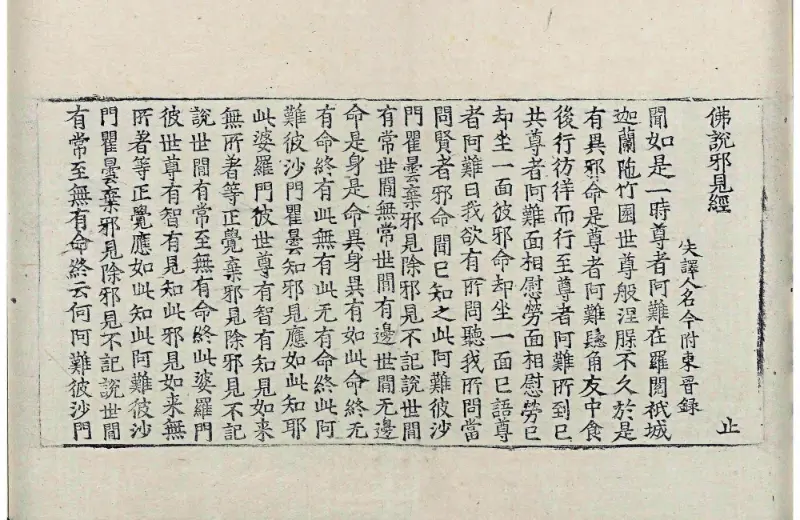 佛說邪見經
止
失譯人名今附東晉錄
聞如是一時尊者阿難在羅閱祇城
迦蘭陁竹園世尊般涅臊不久於是
有異邪命是尊者阿難髫角友中食
後行彷徉而行至尊者阿難所到已
共尊者阿難面相慰勞面相慰勞已
却坐一面彼邪命却坐一面已語尊
者阿難曰我欲有所問聽我所問當
問賢者邪命聞已知之此阿難彼沙
門瞿曇棄邪見除邪見不記說世間
有常世間無常世間有邊世間无邊
命是身是命異身異有如此命終无
有命終有此無有此无有命終此阿
難彼沙門瞿曇知邪見應如此知耶
此婆羅門彼世尊有智有知見如来
無所著等正覺棄邪見除邪見不記
說世間有常至無有命終此婆羅門
彼世尊有智有見知此邪見如来無
所著等正覺應如此知此阿難彼沙
門瞿曇棄邪見除邪見不記說世間
有常至無有命終云何阿難彼沙門